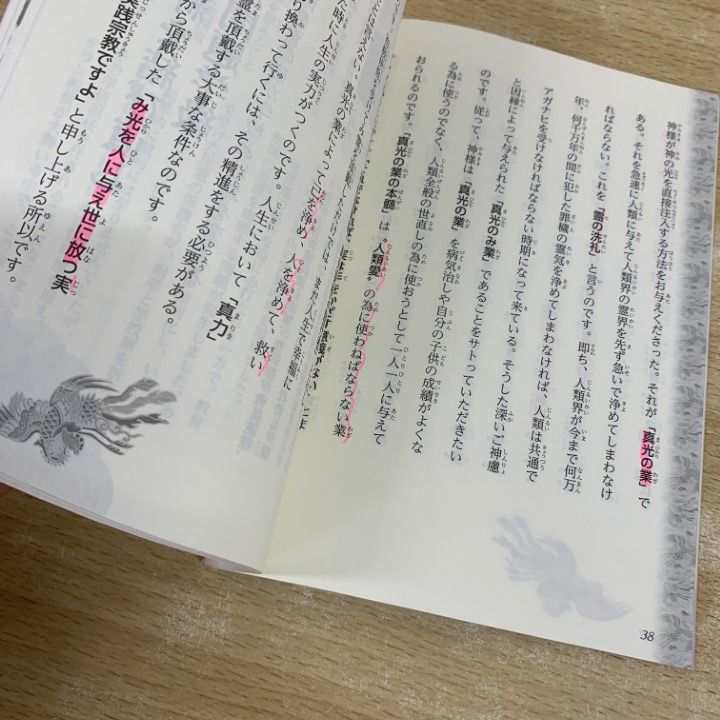 神様が神の光を直接注入する方法をお与えくださった。それが「真光の業」で
ある。それを急速に人類に与えて人類界の霊界を先ず急いで浄めてしまわなけ
ればならない。これを「霊の洗礼」と言うのです。即ち、人類界が今まで何万
年、何千万年の間に犯した罪穢の霊気を浄めてしまわなければ、人類は共通で
アガナヒを受けなければならない時期になって来ている。そうした深いご神慮
と因縁によって与えられた「真光のみ業」であることをサトっていただきたい
のです。従って、神様は「真光の業」を病気治しや自分の子供の成績がよくな
る為に使うのでなく、人類全般の世直しの為に使おうとして一人一人に与えて
おられるのです。「真光の業の本髄」は〝人類愛〟の為に使わねばならない業
38
た時、人生の実力がつくのです。人生において「真力」
り換わって行くには、その精進をする必要がある。
霊を頂戴する大事な条件なのです。
から頂戴した「み光を人に与え世に放つ実
実践宗教ですよ」と申し上げる所以です。
真光の業によって己を浄め、人を浄めて、救い